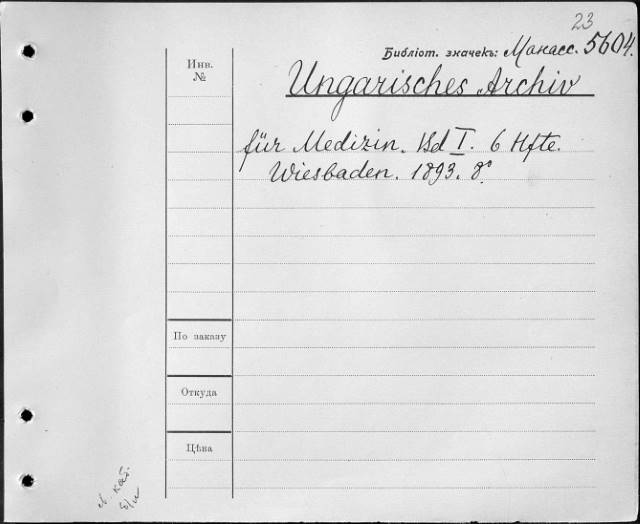 23
Библіот. значекъ: Манасс. 5604.
Инв.
№
Ungarisches Archiv
für Medizin. Bd I. 6 Hfte.
Wiesbaden. 1893. 8°.
По заказу
Откуда
Цѣна